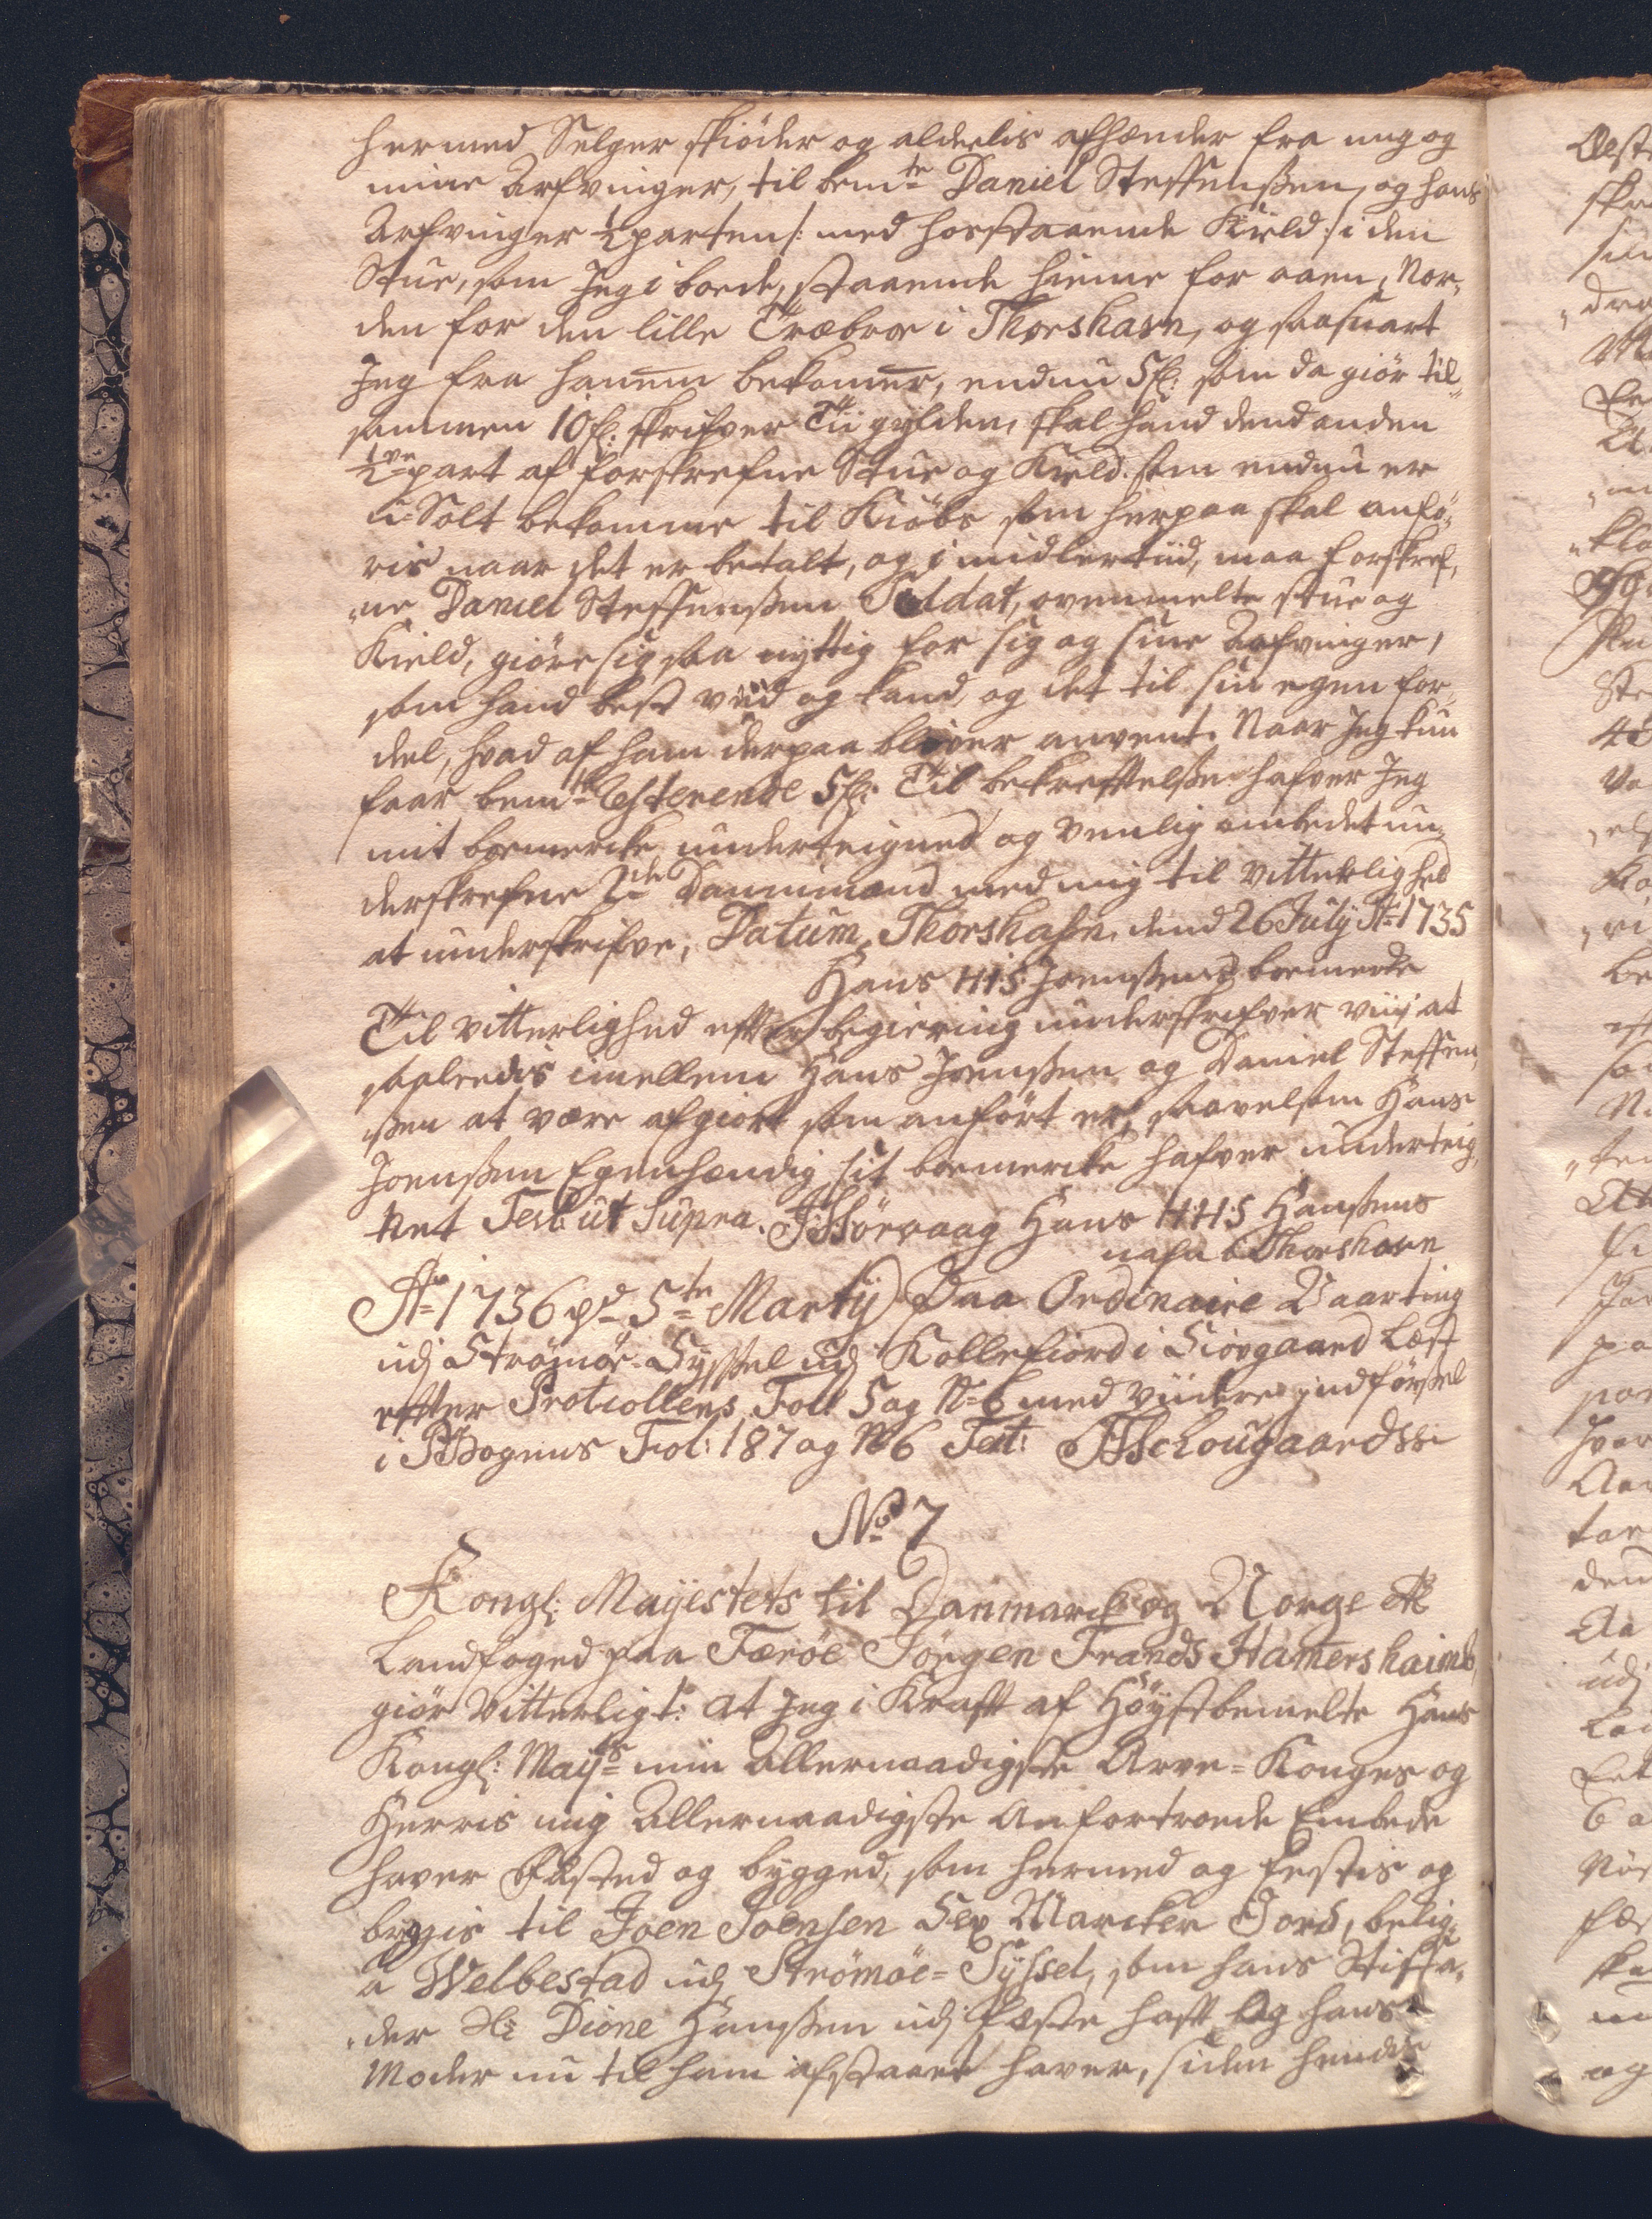 hermed Selger skiöder og aldeelis afhænder fra mig og
mine Arfvinger, til bemte Daniel Steffenßen, og hans
Arfvinger ½ parten /: med hosstaaende Kield :/ i den
Stue, som Jeg i boede, staaende hieme for aaen, Nor„
den for den lille Træbroe i Thorshavn, og saasnart
Jeg fra hanem bekomer, endnu 5 fl: som da giör til„
sammen 10 fl: skrifver Tii gylden, skal hand dend anden
½ve part af forskrefne Stue og Kield som endnu er
u-Solt bekomme til Kiöbs som herpaa skal anfö„
ris naar det er betalt, og i midlertiid, maa forskref„
„ne Daniel Steffenßen Soldat, ovenmelte stue og
Kield, giöre sig saa nyttig for sig og sine Arfvinger,
som hand best viid og kand, og det til sin egen for„
deel, hvad af ham derpaa bliver anvent. Naar Jeg kun
faar bemte Resterende 5 fl: Til bekreftelße hafver Jeg
mit boemercke underteigned og venlig ombedet un„
derskrefne 2de Dannimænd med mig til vitterlighed
at underskrifve, Datum Thorshafn dend 26 July Ao 1735
Hans H I S Joenßens boemercke
Til vitterlighed efter begiering underskrifver viij at
saaledis imellem Hans Joenßen og Daniel Steffen„
ßen at være afgiort som anfört er, saavelsom Hans
Joenßen Egenhændig sit boemercke hafver underteig„
net Test: ut Supra. Hans H:H:S Hanßens
nafn i Thorshavn
Ao 1736 d 5te Martij Paa Ordinaire Vaarting
udj Strömöe Syßel udj Kollefiord i Siovgaard Læst
efter Protocollens Fol: 5 og No 6 med viidere jndförßel
i Fol: 187 og No 6 Test:
No 7
Kongl: Mayestets til Danmarck og Norge &c
Landfoged paa Færöe Jörgen Frands Hamershaimb,
giör Vitterligt: at Jeg i Kraft af Höystbemelte Hans
Kongl: Mayts min Allernaadigste Arve-Konges og
Herris mig Allernaadigste Anfortroede Embede
haver Fæsted og bygged, som hermed og Festis og
bygis til Joen Joensen Sex Marcker Jord, belig„
a Welbestad udj Strömöe-Syssel, som hans Stiffa„
„der Dione Hanßen udj Fæste haft og hans
Moder nu til ham afstaaet haver, siden hendis